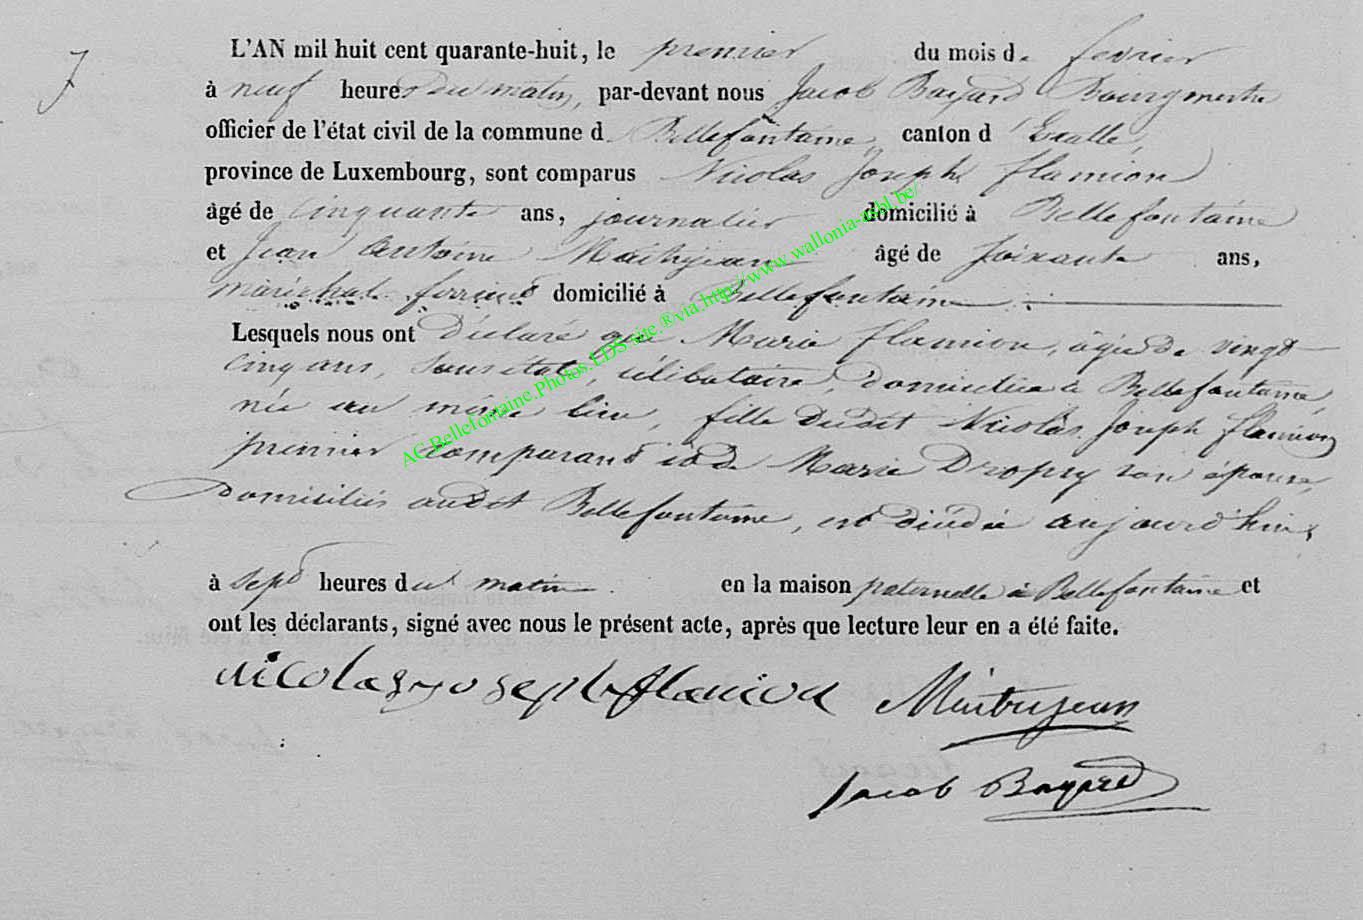 7
L'AN mil huit cent quarante-huit, le premier du mois de fevrier
à neuf heures du matin, par-devant nous Jacob Bayard Bourgmestre
officier de l'état civil de la commune d Bellefontaine, canton d'Etalle,
province de Luxembourg, sont comparus Nicolas Joseph flamion
âgé de cinquante ans, journalier domicilié à Bellefontaine
et Jean Antoine Maitrejean âgé de soixante ans,
marechal ferrant domicilié à Bellefontaine
Lesquels nous ont déclaré que Marie flamion, agée de vingt
cinq ans, sans état, célibataire, domiciliée à Bellefontaine,
née au même lieu, fille dudit Nicolas Joseph flamion
premier comparant et de Marie Dropsy son épouse,
domiciliés audit Bellefontaine, est décédée aujourd'hui,
à sept heures du matin. en la maison paternelle à Bellefontaine et
ont les déclarants, signé avec nous le présent acte, après que lecture leur en a été faite.
nicolas joseph flamion Maitrejean
Jacob Bayard
AC.Bellefontaine.Photos.LDS.site.®via.http://www.wallonia-asbl.be/